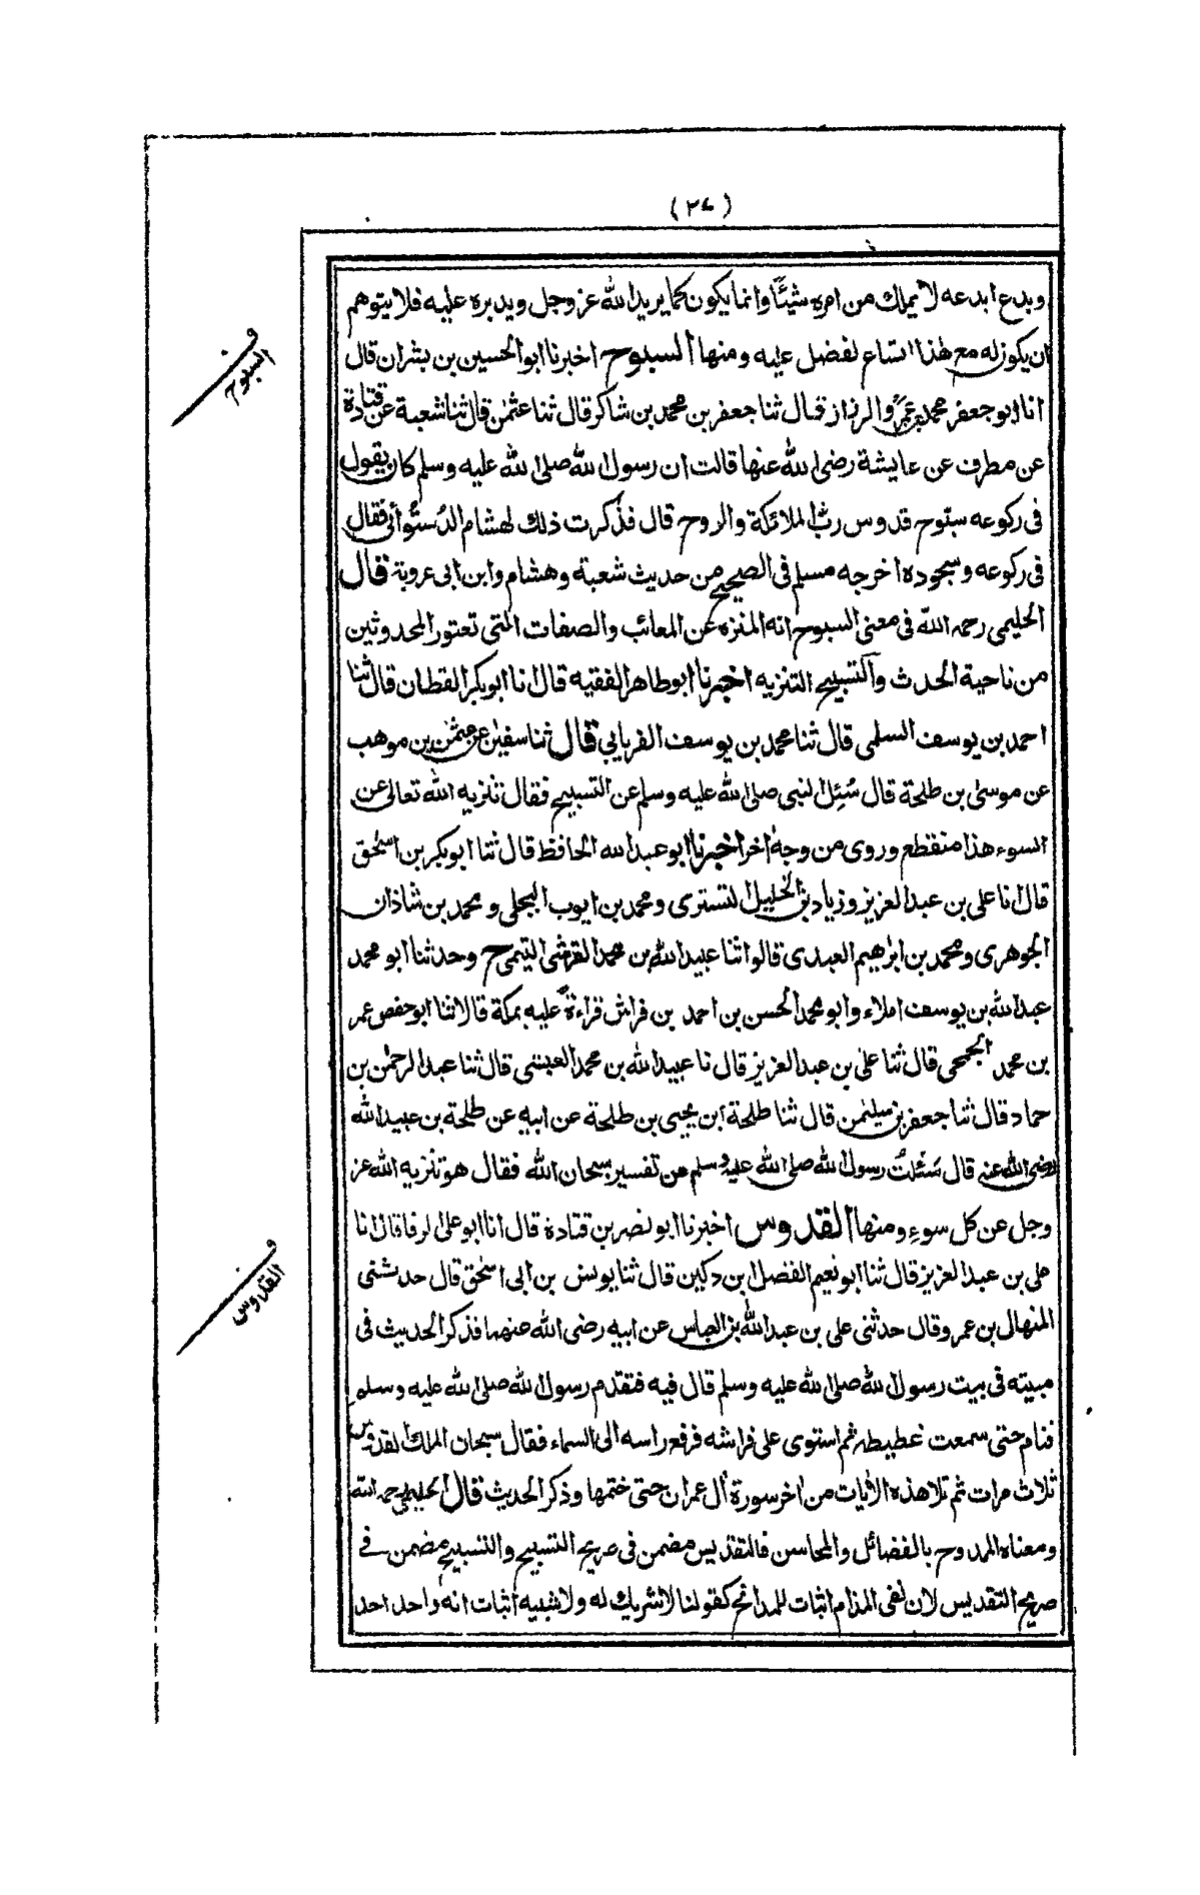 (٢٧)
وبدع ابدعه لا يملك من امره شيئًا وانما يكون كما يريد الله عز وجل ويدبره عليه فلا يتوهم
ان يكون له مع هذا اتساع لفضل عليه ومنها السبوح اخبرنا ابو الحسين بن بشران قال
انا ابو جعفر محمد بن عمرو الرزاز قال ثنا جعفر بن محمد بن شاكر قال ثنا عثمٰن قال ثنا شعبة عن قتادة
عن مطرف عن عايشة رضى الله عنها قالت ان رسول الله صلى الله عليه وسلم كان يقول
فى ركوعه سبّوح قدوس ربّ الملائكة والروح قال فذكرت ذلك لهشام الدستوائى فقال
فى ركوعه وسجوده اخرجه مسلم فى الصحيح من حديث شعبة وهشام وابن ابى عروبة قال
الحليمى رحمه الله فى معنى السبوح انه المنزه عن المعائب والصفات التى تعتور المحدوثين
من ناحية الحدث والتسبيح التنزيه اخبرنا ابو طاهر الفقيه قال انا ابو بكر القطان قال ثنا
احمد بن يوسف السلمى قال ثنا محمد بن يوسف الفريابي قال ثنا سفيٰن عن عثمٰن بن موهب
عن موسىٰ بن طلحة قال سُئِل النبى صلى الله عليه وسلم عن التسبيح فقال تنزيه الله تعالى عن
السوء هذا منقطع وروى من وجهٍ اخر اخبرنا ابو عبد الله الحافظ قال ثنا ابو بكر بن اسحٰق
قال انا على بن عبد العزيز وزياد بن الخليل التسترى ومحمد بن ايوب البجلى ومحمد بن شاذان
الجوهرى ومحمد بن ابرٰهيم العبدى قالوا ثنا عبيد الله بن محمد القرشى التيمى ح وحدثنا ابو محمد
عبد الله بن يوسف املاء وابو محمد الحسن بن احمد بن فراش قراءةً عليه بمكة قالا ثنا ابو حفص عمر
بن محمد الجمحى قال ثنا على بن عبد العزيز قال نا عبيد الله بن محمد العبسى قال ثنا عبد الرحمٰن بن
حماد قال ثنا جعفر بن سليمٰن قال ثنا طلحة ابن يحيى بن طلحة عن ابيه عن طلحة بن عبيد الله
رضى الله عنه قال سَئَلتُ رسول الله صلى الله عليه وسلم عن تفسير سبحان الله فقال هو تنزيه الله عز
وجل عن كل سوءٍ ومنها القدوس اخبرنا ابو نصر بن قتادة قال انا ابو على الرفا قال انا
على بن عبد العزيز قال ثنا ابو نعيم الفضل ابن دكين قال ثنا يونس بن ابى اسحٰق قال حدثنى
المنهال بن عمرو قال حدثنى على بن عبد الله بن العباس عن ابيه رضى الله عنهما فذكر الحديث فى
مبيته فى بيت رسول الله صلى الله عليه وسلم قال فيه فتقدم رسول الله صلى الله عليه وسلم
فنام حتى سمعت غطيطه ثم استوى على فراشه فرفع راسه الى السماء فقال سبحان الملك القدوس
ثلاث مرات ثم تلا هذه الأيات من اخر سورة أل عمران حتى ختمها وذكر الحديث قال الحليمى رحمه الله
ومعناه الممدوح بالفضائل والمحاسن فالتقديس مضمن فى صريح التسبيح والتسبيح مضمن فى
صريح التقديس لان نفى المذام اثبات للمدائح كقولنا لا شريك له ولا شبيه اثبات انه واحد احد
ف السبوح
ف القدوس